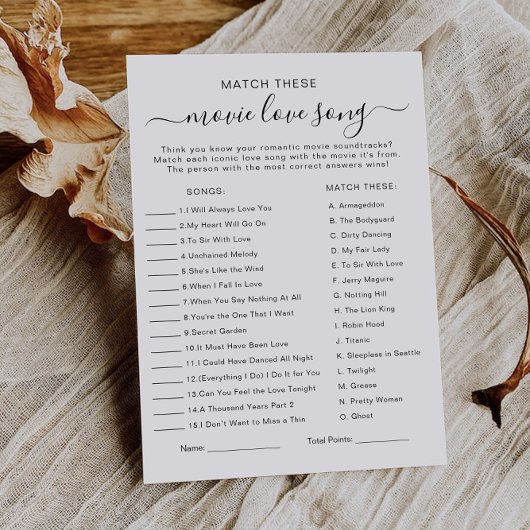 MATCH THESE
movie love song
Think you know your romantic movie soundtracks?
Match each iconic love song with the movie it's from.
The person with the most correct answers wins!
SONGS:
1.I Will Always Love You
2.My Heart Will Go On
3.To Sir With Love
4.Unchained Melody
5.She's Like the Wind
6.When I Fall In Love
7.When You Say Nothing At All
8.You're the One That I Want
9.Secret Garden
10.It Must Have Been Love
11.I Could Have Danced All Night
12.(Everything I Do) I Do It for You
13.Can You Feel the Love Tonight
14.A Thousand Years Part 2
15.I Don't Want to Miss a Thin
MATCH THESE:
A. Armageddon
B. The Bodyguard
C. Dirty Dancing
D. My Fair Lady
E. To Sir With Love
F. Jerry Maguire
G. Notting Hill
H. The Lion King
I. Robin Hood
J. Titanic
K. Sleepless in Seattle
L. Twilight
M. Grease
N. Pretty Woman
O. Ghost
Name: ____________ Total Points: ____________